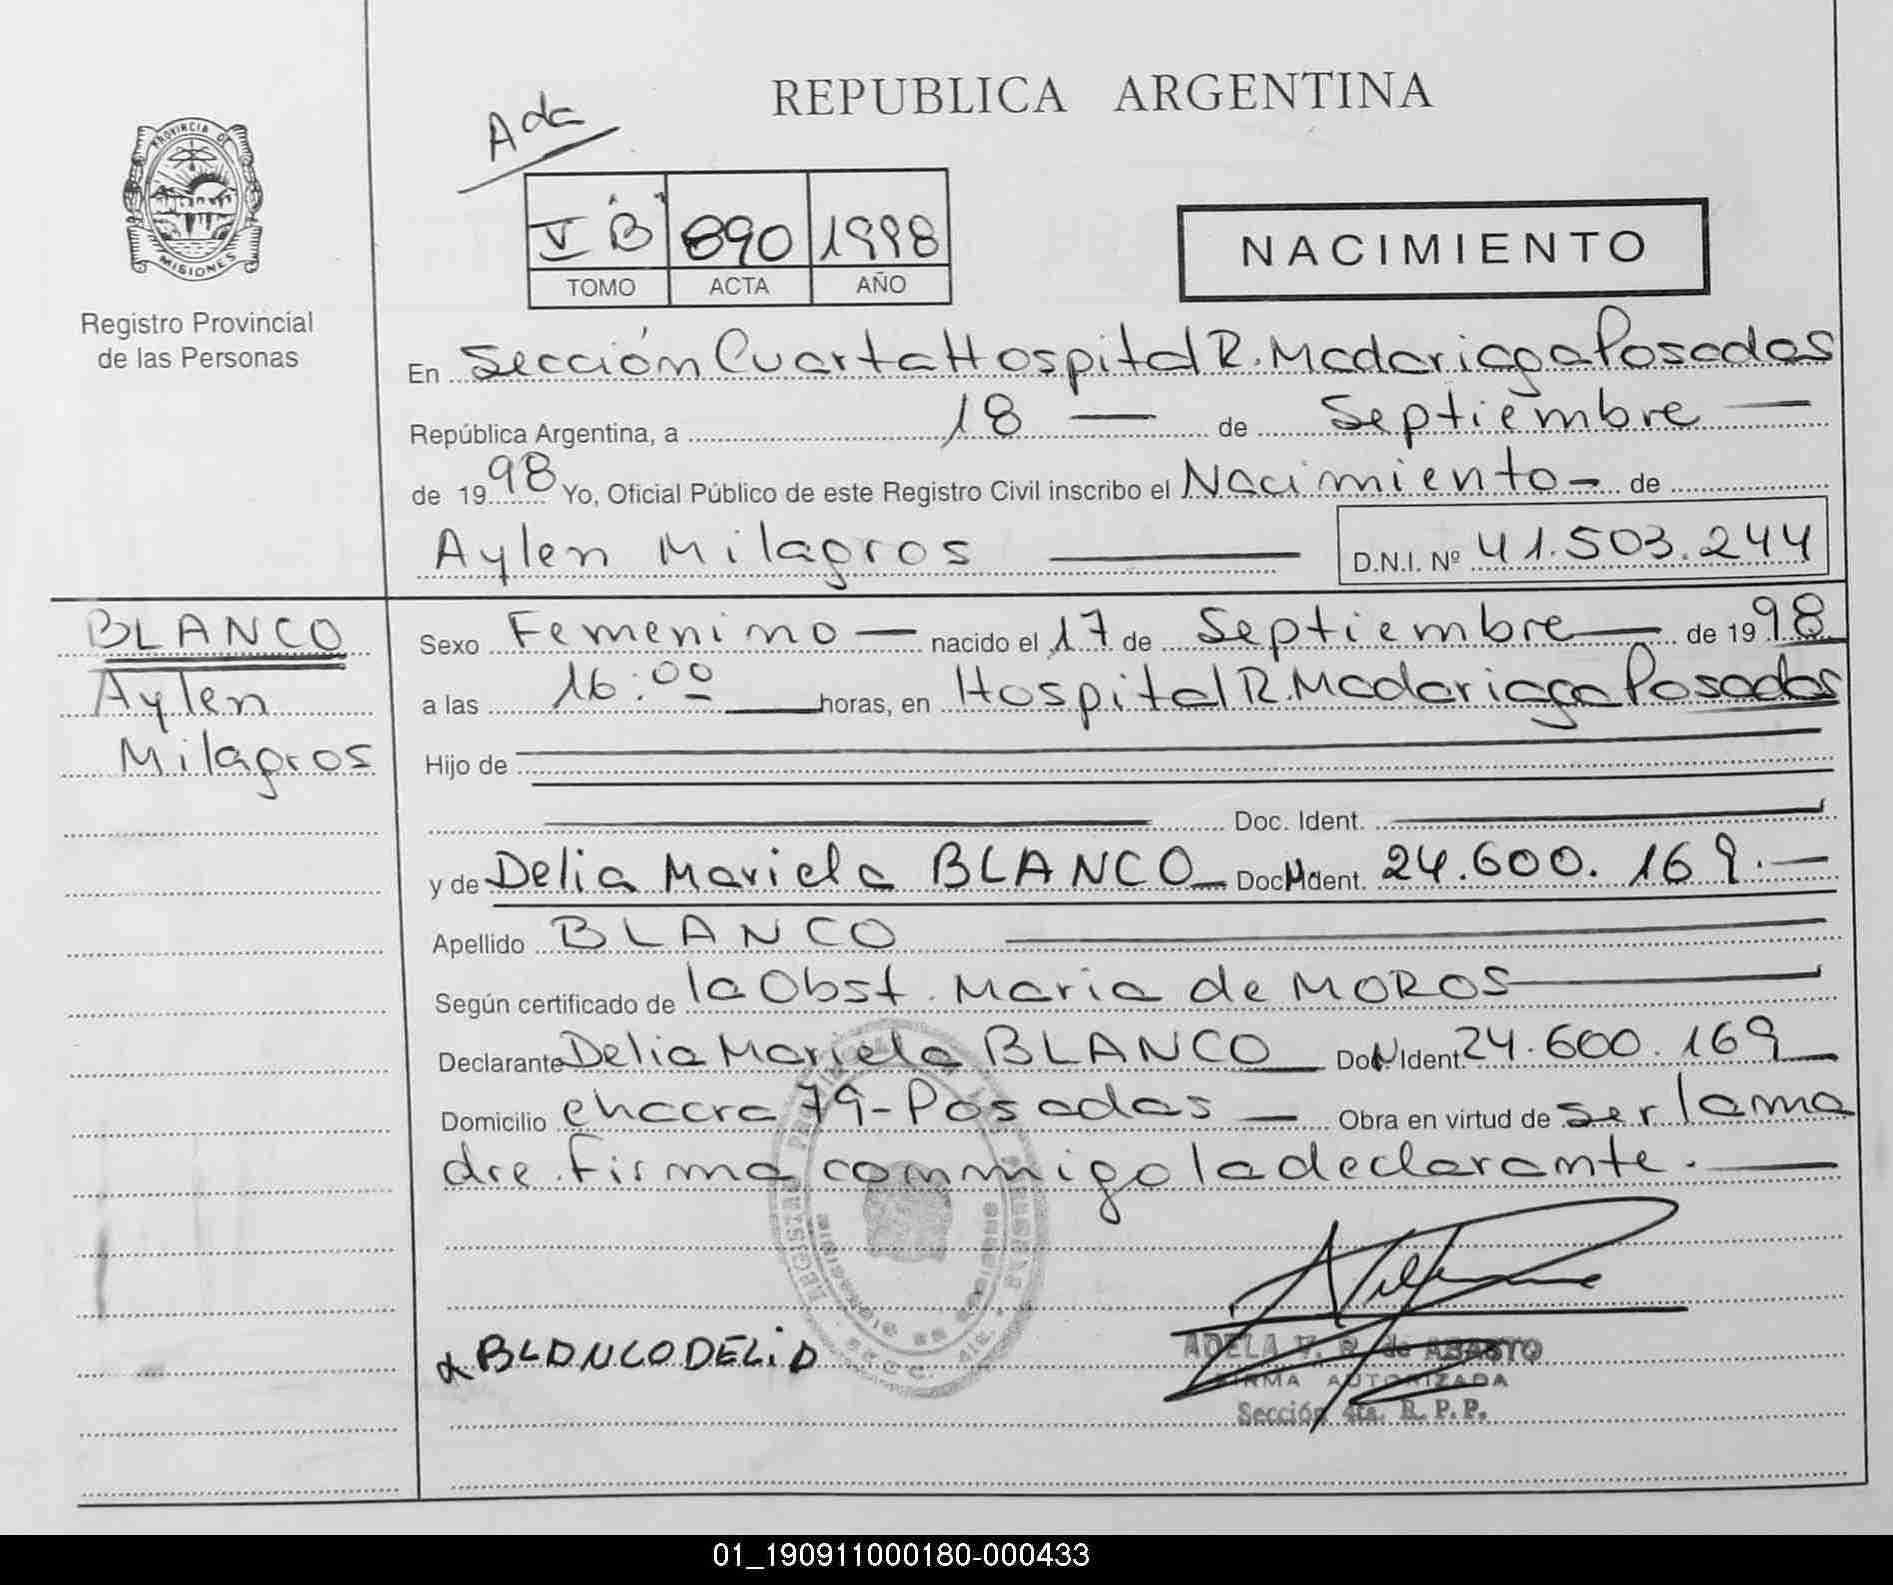 REPUBLICA ARGENTINA
Ada
PROVINCIA DE
MISIONES
Registro Provincial
de las Personas
V "B" 890 1998
TOMO ACTA AÑO
NACIMIENTO
En Sección Cuarta Hospital R. Madariaga Posadas
República Argentina, a 18 — de Septiembre —
de 1998 Yo, Oficial Público de este Registro Civil inscribo el Nacimiento - de
Aylen Milagros — D.N.I. Nº 41.503.244
BLANCO
Aylen
Milagros
Sexo Femenino — nacido el 17 de Septiembre — de 1998
a las 16:00 — horas, en Hospital R. Madariaga Posadas
Hijo de
Doc. Ident.
y de Delia Mariela BLANCO — Doc. Ident. 24.600.169.—
Apellido BLANCO —
Según certificado de la Obst. Maria de MOROS —
Declarante Delia Mariela BLANCO — Doc. Ident. 24.600.169 —
Domicilio chacra 79 - Posadas — Obra en virtud de ser la ma
dre. Firma conmigo la declarante. —
BLANCO DELiA
ADELA V. R. de
FIRMA AUTORIZADA
Sección 4ta. R. P. P.
01_190911000180-000433